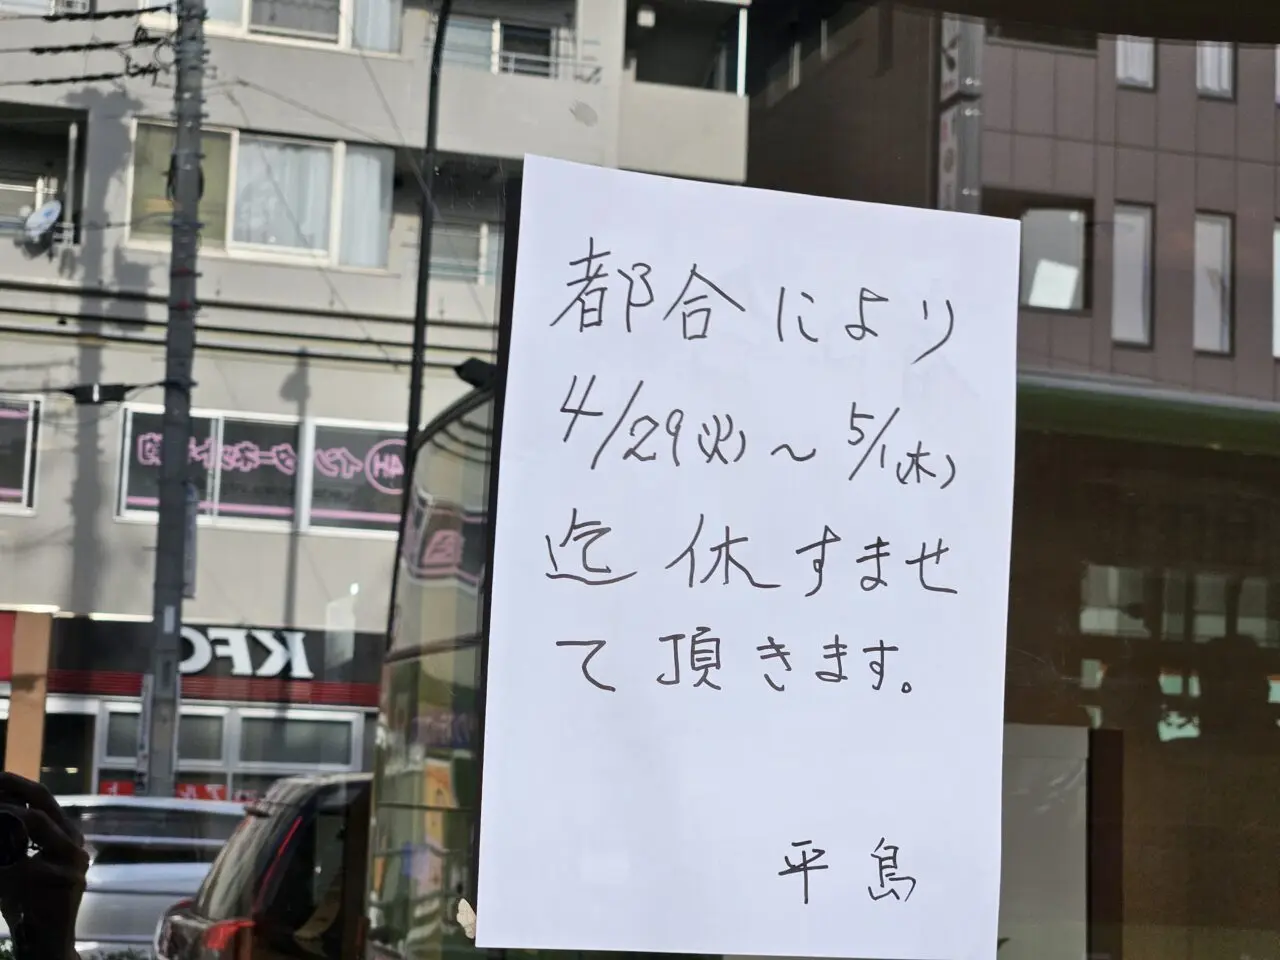 都合により
4/29(火)～5/1(木)
迄休すませ
て頂きます。
平島
KFC